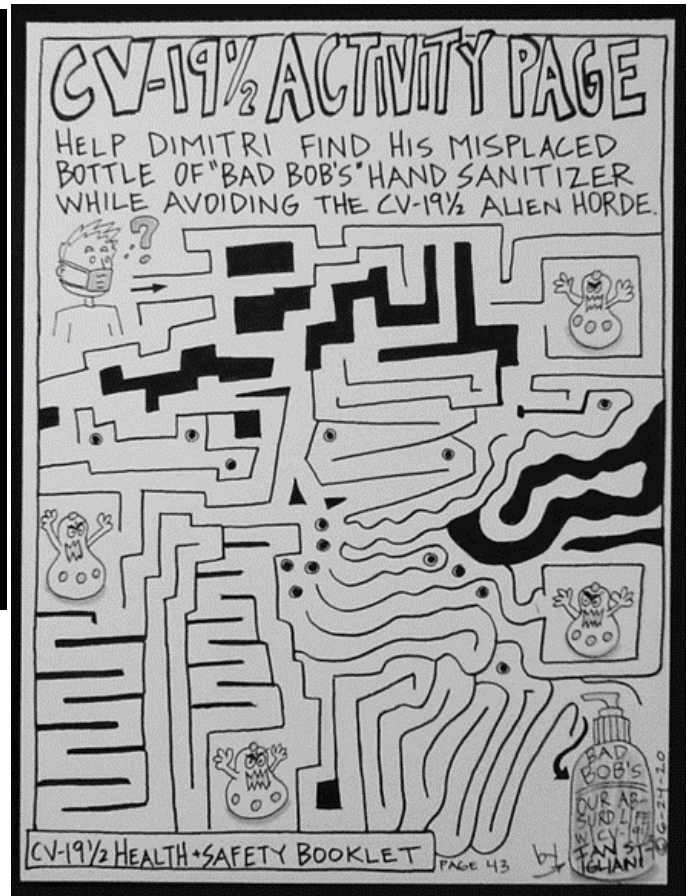 CV-19½ ACTIVITY PAGE
HELP DIMITRI FIND HIS MISPLACED
BOTTLE OF "BAD BOB'S" HAND SANITIZER
WHILE AVOIDING THE CV-19½ ALIEN HORDE.
?
BAD
BOB'S
OUR AB-
SURD LIFE
W/ CV-19½
by IAN ST.
IGLIANI
© 6-24-20
CV-19½ HEALTH + SAFETY BOOKLET
PAGE 43